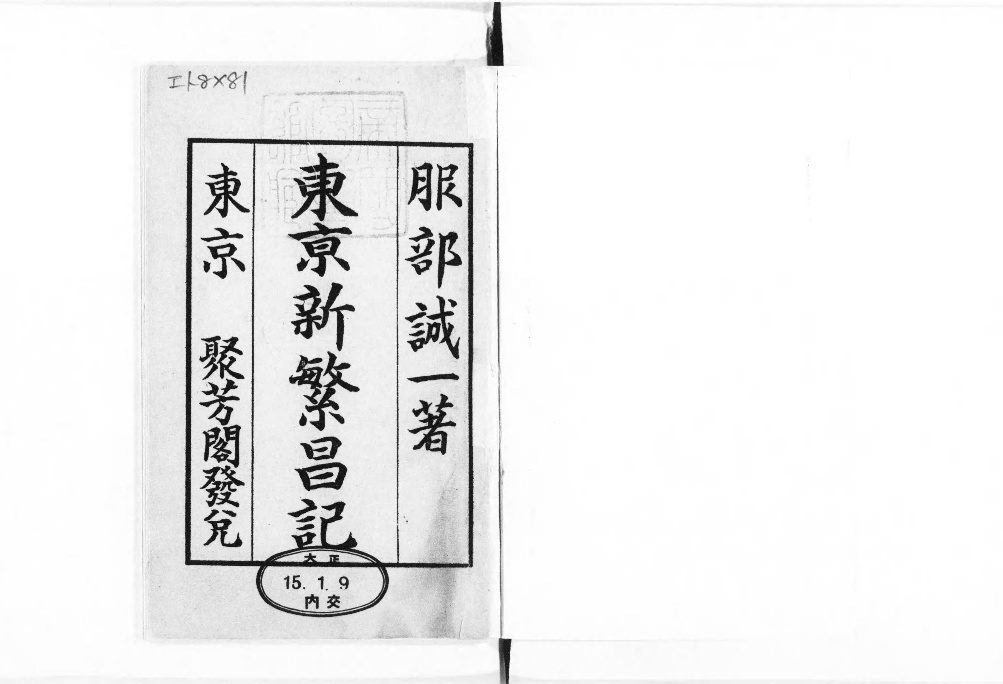 服部誠一著
東京新繁昌記
東京 聚芳閣發兌
大正
15. 1. 9
内交